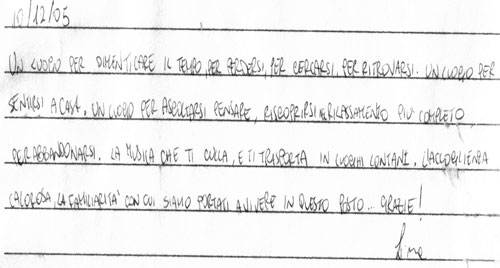 10/12/05
UN LUOGO PER DIMENTICARE IL TEMPO, PER PERDERSI, PER CERCARSI, PER RITROVARSI. UN LUOGO PER
SENTIRSI A CASA. UN LUOGO PER ASCOLTARSI PENSARE, RISCOPRIRSI RILASSAMENTO PIU' COMPLETO
PER ABBANDONARSI. LA MUSICA CHE TI CULLA, E TI TRASPORTA IN LUOGHI LONTANI. L'ACCOGLIENZA
CALOROSA, LA FAMILIARITA' CON CUI SIAMO PORTATI A VIVERE IN QUESTO POSTO... GRAZIE!